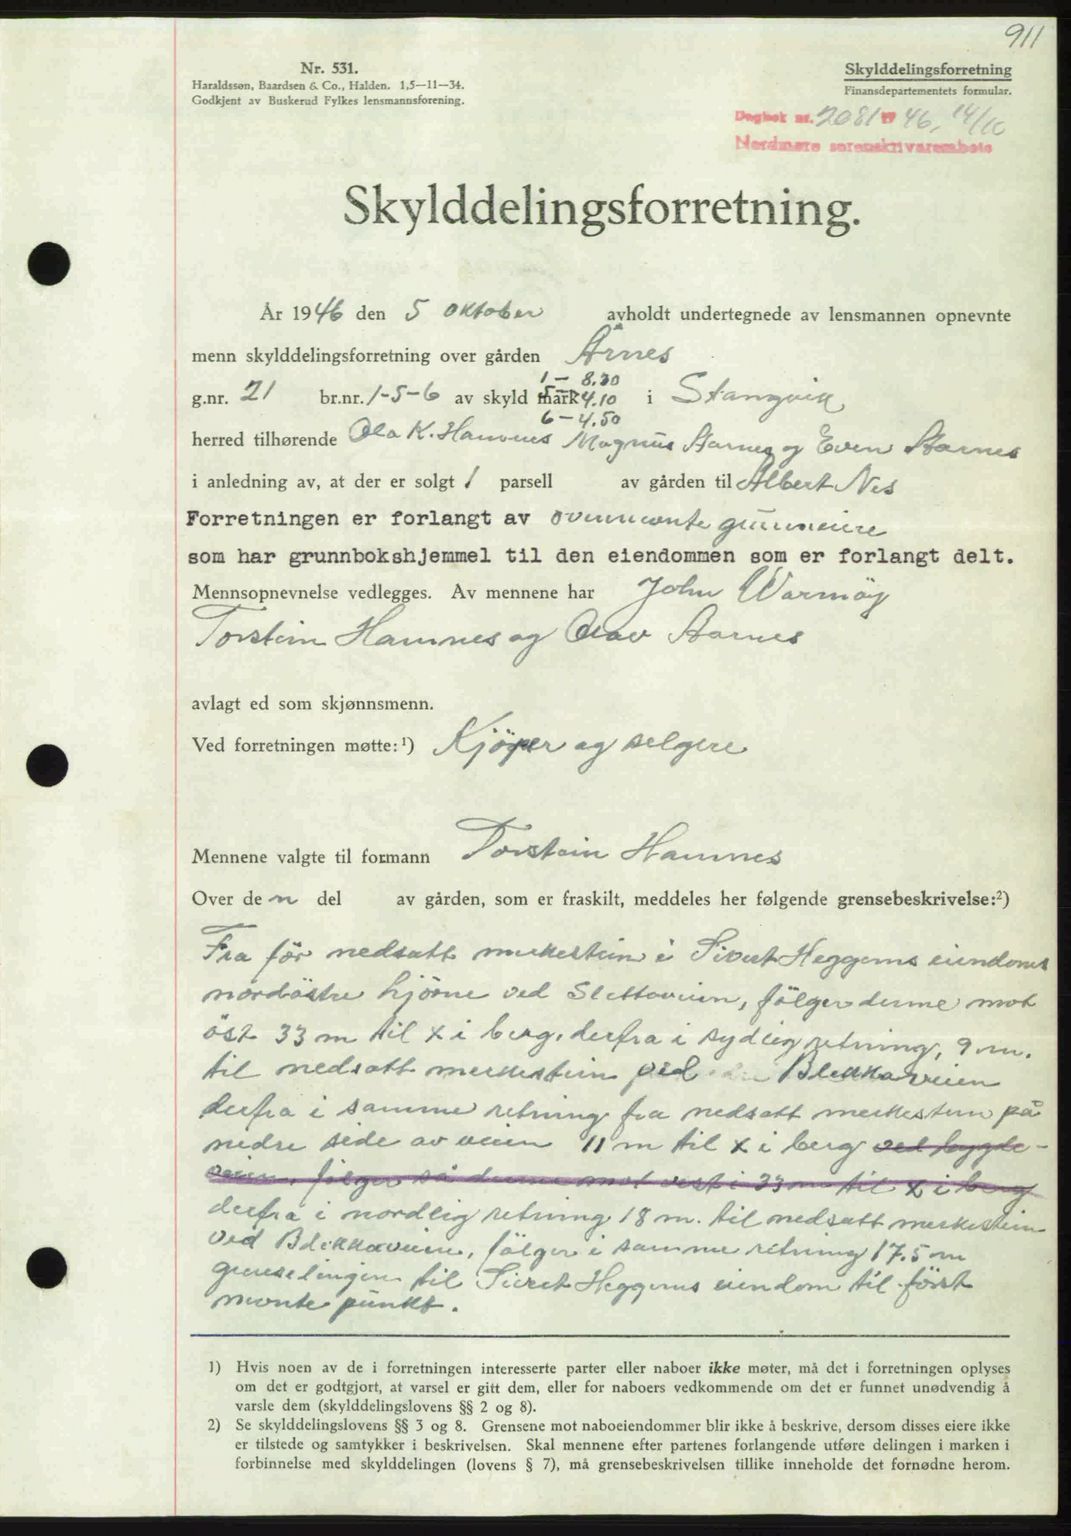 911
Nr. 531.
Haraldssøn, Baardsen & Co., Halden. 1,5—11—34.
Godkjent av Buskerud Fylkes lensmannsforening.
Skylddelingsforretning
Finansdepartementets formular.
Dagbok nr. 2081 19 46, 14/10
Nordmøre sorenskriverembete
Skylddelingsforretning.
År 1946 den 5 oktober avholdt undertegnede av lensmannen opnevnte
menn skylddelingsforretning over gården Årnes
1 — 8.30
g.nr. 21 br.nr. 1-5-6 av skyld mark 5 — 4.10 i Stangvik
6 — 4.50
herred tilhørende Ola K. Hamnes Magnus Aarnes og Even Aarnes
i anledning av, at der er solgt 1 parsell av gården til Albert Nes
Forretningen er forlangt av ovennevnte grunneiere
som har grunnbokshjemmel til den eiendommen som er forlangt delt.
Mennsopnevnelse vedlegges. Av mennene har John Warmöy
Torstein Hamnes og Olav Aarnes
avlagt ed som skjønnsmenn.
Ved forretningen møtte:¹) Kjöper og selgere
Mennene valgte til formann Torstein Hamnes
Over den del av gården, som er fraskilt, meddeles her følgende grensebeskrivelse:²)
Fra för nedsatt merkestein i Sivert Heggems eiendoms
nordöstre hjörne ved Slettaveien, fölger denne mot
öst 33 m til x i berg, derfra i sydlig retning, 9 m.
til nedsatt merkestein ved Blekkaveien
derfra i samme retning fra nedsatt merkestein på
nedre side av veien 11 m til x i berg ved bygde-
veien, fölger så denne mot vest i 33 m til x i berg
derfra i nordlig retning 18 m. til nedsatt merkestein
ved Blekkaveien, fölger i samme retning 17.5 m
grenselinjen til Sivert Heggems eiendom til först
nevnte punkt.
1) Hvis noen av de i forretningen interesserte parter eller naboer ikke møter, må det i forretningen oplyses
om det er godtgjort, at varsel er gitt dem, eller for naboers vedkommende om det er funnet unødvendig å
varsle dem (skylddelingslovens §§ 2 og 8).
2) Se skylddelingslovens §§ 3 og 8. Grensene mot naboeiendommer blir ikke å beskrive, dersom disses eiere ikke
er tilstede og samtykker i beskrivelsen. Skal mennene efter partenes forlangende utføre delingen i marken i
forbinnelse med skylddelingen (lovens § 7), må grensebeskrivelsen tillike inneholde det fornødne herom.